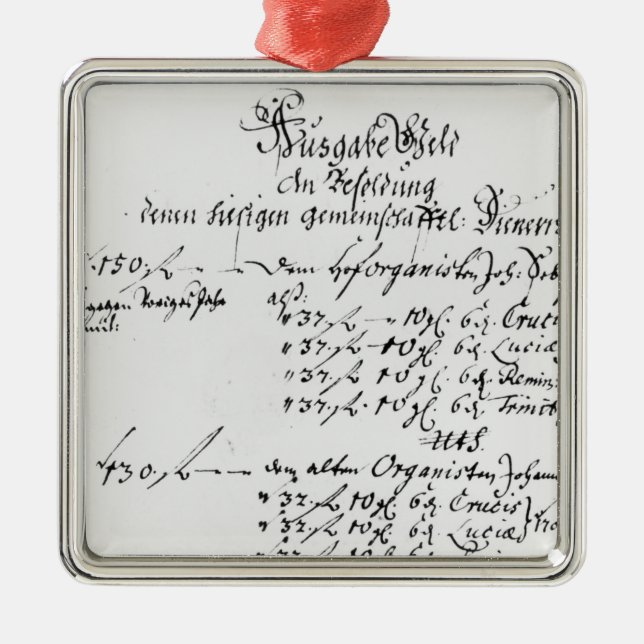 Ausgabe Geld
An Besoldung
denen hiesigen gemeinschafftl: Dienern
150. fl — — Dem Hoforganisten Joh: Seb
gegen voriges Jahr
alß:
" 37. fl — 10 gl. 6 d. Crucis
" 37. fl 10 gl. 6 d. Luciæ
" 37. fl 10 gl. 6 d. Remin:
" 37. fl. 10 gl. 6 d. Trinit
130. fl — — dem alten Organisten Johann
" 32. fl 10 gl. 6 d. Crucis
" 32. fl 10 gl. 6 d. Luciæ